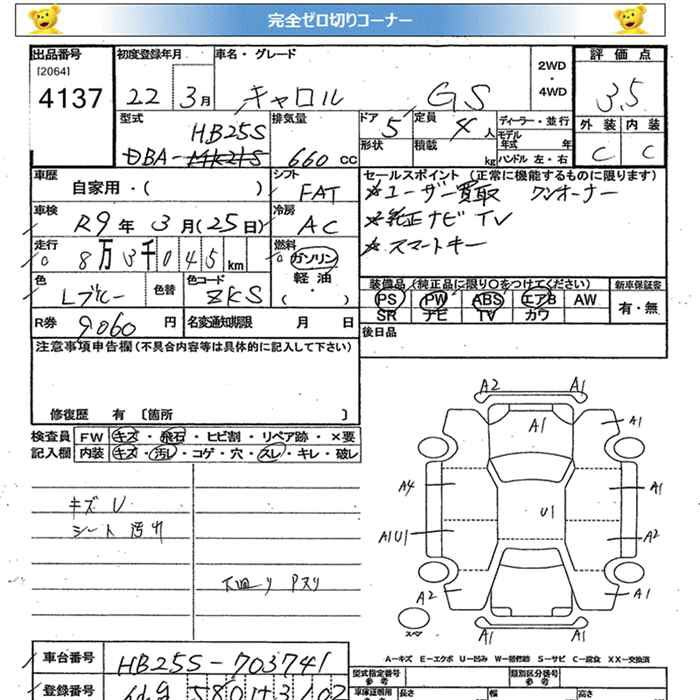 完全ゼロ切りコーナー
出品番号 初度登録年月 車名・グレード 評価点
[2064]
4137 22 3月 キャロル GS 2WD・4WD 3.5
型式 排気量 ドア 定員 ディーラー・並行 外装 内装
HB25S 5 4人 モデル年式 年
DBA- 660cc 形状 積載 kg ハンドル 左・右 C C
車歴 シフト セールスポイント(正常に機能するものに限ります)
自家用・( ) FAT ※ユーザー買取 ワンオーナー
車検 冷房 ※純正ナビTV
R9年 3月(25日) AC ※スマートキー
走行 燃料
8万3千045km ガソリン
軽油
・( )
色 色替 色コード 装備品(純正品に限り○をつけてください) 新車保証書
Lブルー ZKS PS PW ABS エアB AW 有・無
SR ナビ TV カワ
R券 9060円 名変通知期限 月 日 後日品
注意事項申告欄(不具合内容等は具体的に記入して下さい)
修復歴 有 〔箇所 〕
検査員 FW キズ・飛石・ヒビ割・リペア跡・×要
記入欄 内装 キズ・汚レ・コゲ・穴・スレ・キレ・破レ
キズ U
シート 汚レ
下廻り Pスリ
A2 A1
A1 A1
A4 A1
U1
A1U1 A2
A2 A1
A1 A1
スペア
A-キズ E-エクボ U-凹み W-補修跡 S-サビ C-腐食 XX-交換済
車台番号 HB25S-703741 型式指定番号 類別区分番号
参考 参考
登録番号 580 3102 車庫証明用 長さ 幅 高さ